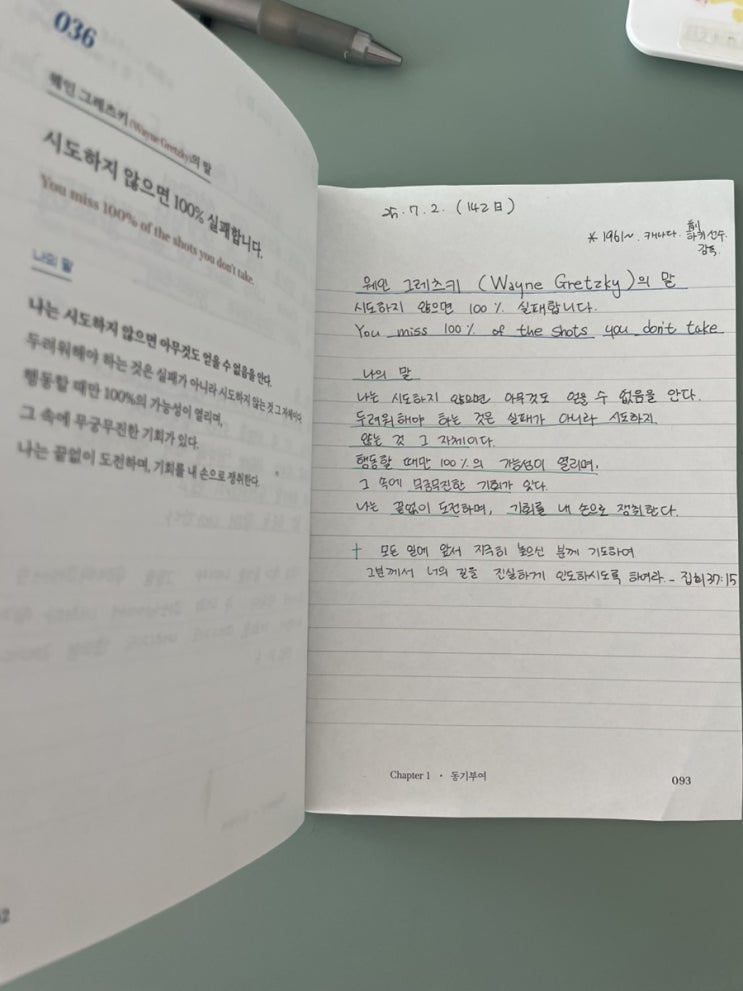 036
웨인 그레츠키(Wayne Gretzky)의 말
시도하지 않으면 100% 실패합니다.
You miss 100% of the shots you don't take.
나의 말
나는 시도하지 않으면 아무것도 얻을 수 없음을 안다.
두려워해야 하는 것은 실패가 아니라 시도하지 않는 것 그 자체이다.
행동할 때만 100%의 가능성이 열리며,
그 속에 무궁무진한 기회가 있다.
나는 끝없이 도전하며, 기회를 내 손으로 쟁취한다.
25. 7. 2. (142日)
* 1961~. 캐나다. 前
하키선수.
감독
웨인 그레츠키 (Wayne Gretzky)의 말
시도하지 않으면 100% 실패합니다.
You miss 100% of the shots you don't take
나의 말
나는 시도하지 않으면 아무것도 얻을 수 없음을 안다.
두려워해야 하는 것은 실패가 아니라 시도하지
않는 것 그 자체이다.
행동할 때만 100%의 가능성이 열리며,
그 속에 무궁무진한 기회가 있다.
나는 끝없이 도전하며, 기회를 내 손으로 쟁취한다.
† 모든 일에 앞서 지극히 높으신 분께 기도하여
그분께서 너의 길을 진실하게 인도하시도록 하여라. - 집회 37:15
Chapter 1 · 동기부여
093